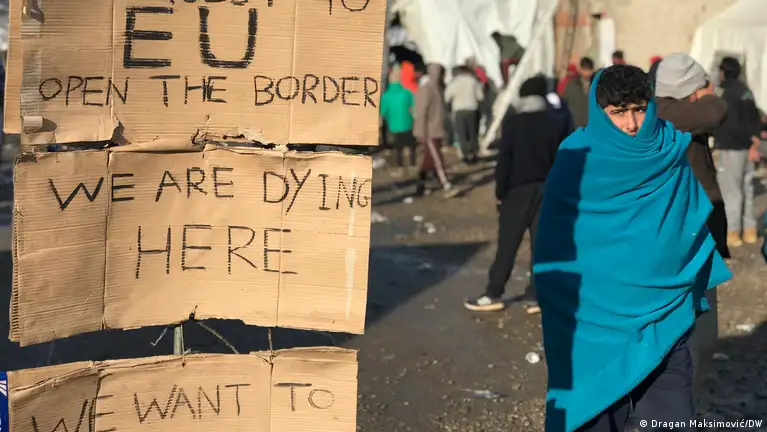 TO
EU
OPEN THE BORDER
WE ARE DYING
HERE
WE WANT TO
© Dragan Maksimović/DW